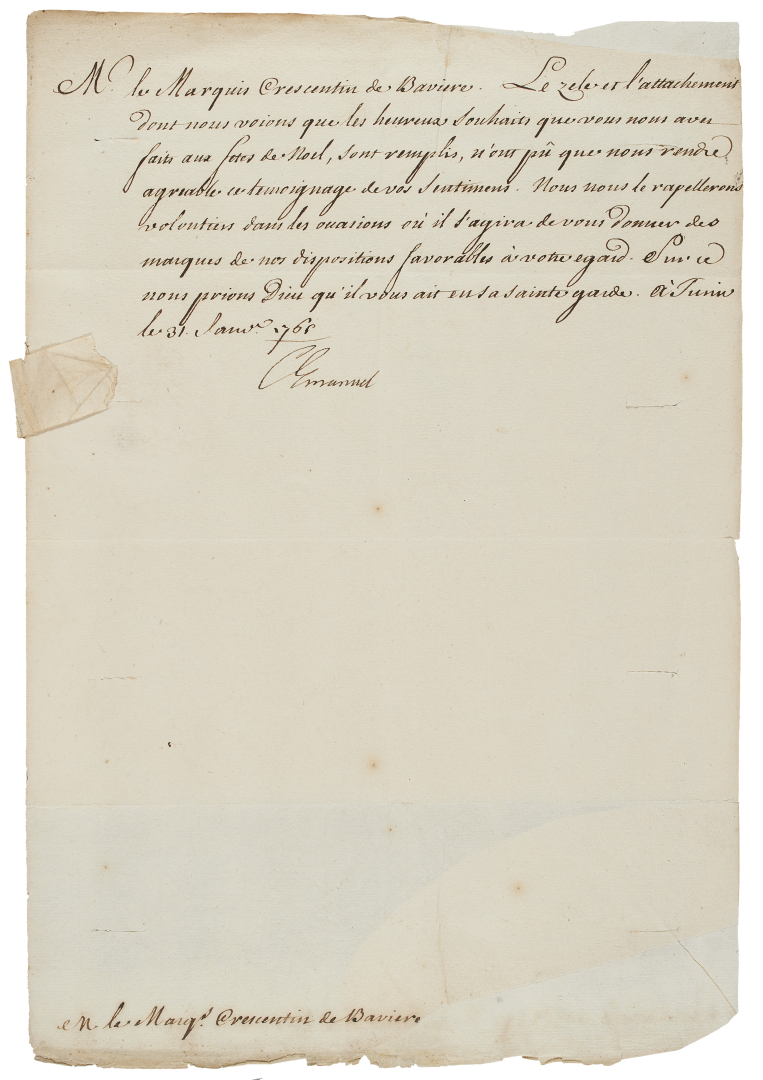 M.r le Marquis Crescentin de Baviere. Le zele et l'attachement
dont nous voions que les heureux souhaits que vous nous avez
faits aux fetes de Noel, sont remplis, n'ont pû que nous rendre
agreable ce temoignage de vos sentimens. Nous nous le rapellerons
volontiers dans les occasions où il s'agira de vous donner des
marques de nos dispositions favorables à votre egard. Sur ce
nous prions Dieu qu'il vous ait en sa sainte garde. à Turin
le 31. Janv.r
CEmanuel
M. le Marq.s Crescentin de Baviere